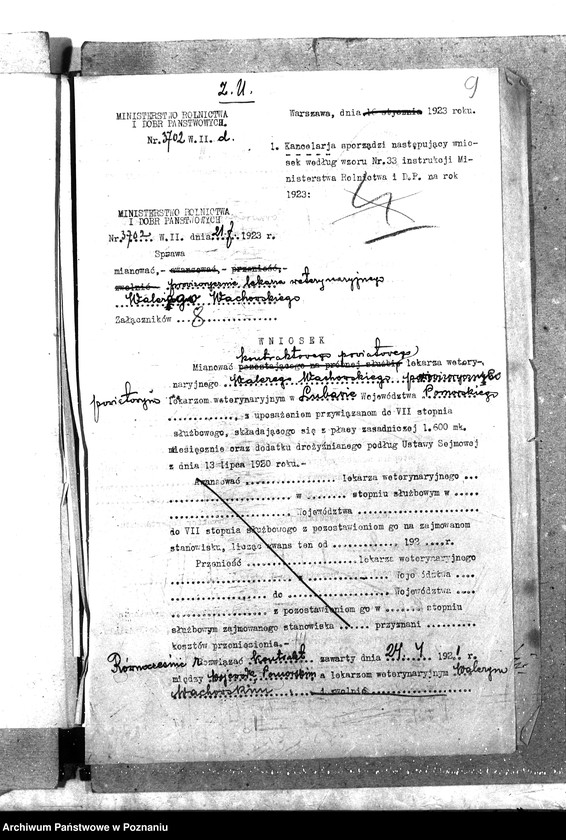 2.U.
9
MINISTERSTWO ROLNICTWA
I DOBR PAŃSTWOWYCH.
Nr. 3702 W.II. d.
Warszawa, dnia 16 stycznia 1923 roku.
1. Kancelarja sporządzi następujący wnio-
sek według wzoru Nr.33 instrukcji Mi-
nisterstwa Rolnictwa i D.P. na rok
1923:
MINISTERSTWO ROLNICTWA
I DOBR PAŃSTWOWYCH
Nr. 3702. W.II. dnia 21 1923 r.
Sprawa
mianować,- awansować,- przenieść,-
zwolnić- lekarza weterynaryjnego
Walerego Wachowskiego
Załączników 8
WNIOSEK
kontraktowego powiatowego
Mianować pozostającego na próbnej służbie lekarza wetery-
naryjnego Walerego Wachowskiego
powiatowym lekarzem weterynaryjnym w Województwa Pomorskiego
z uposażeniem przywiązanem do VII stopnia
służbowego, składającego się z płacy zasadniczej 1.600 mk.
miesięcznie oraz dodatku drożyźnianego podług Ustawy Sejmowej
z dnia 13 lipca 1920 roku.-
Awansować lekarza weterynaryjnego
w stopniu służbowym w
Województwa
do VII stopnia służbowego z pozostawieniem go na zajmowanem
stanowisku, licząc awans ten od 192 r.
Przenieść lekarza weterynaryjnego
z Województwa
do Województwa
z pozostawieniem go w stopniu
służbowym zajmowanego stanowiska przyznani
kosztów przeniesienia.-
Równocześnie rozwiązać kontrakt zawarty dnia 24. 192 r.
między Wojewodą Pomorskim a lekarzem weterynaryjnym Walerym
Wachowskim i zwolnić
Archiwum Państwowe w Poznaniu